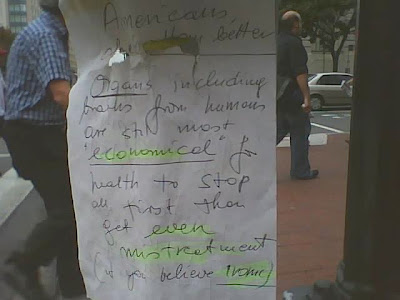 Americans,
better
Organs including
brains from humans
are still most
"economical" for
health to stop
all first than
get even
mistreatment
(if you believe ironic)